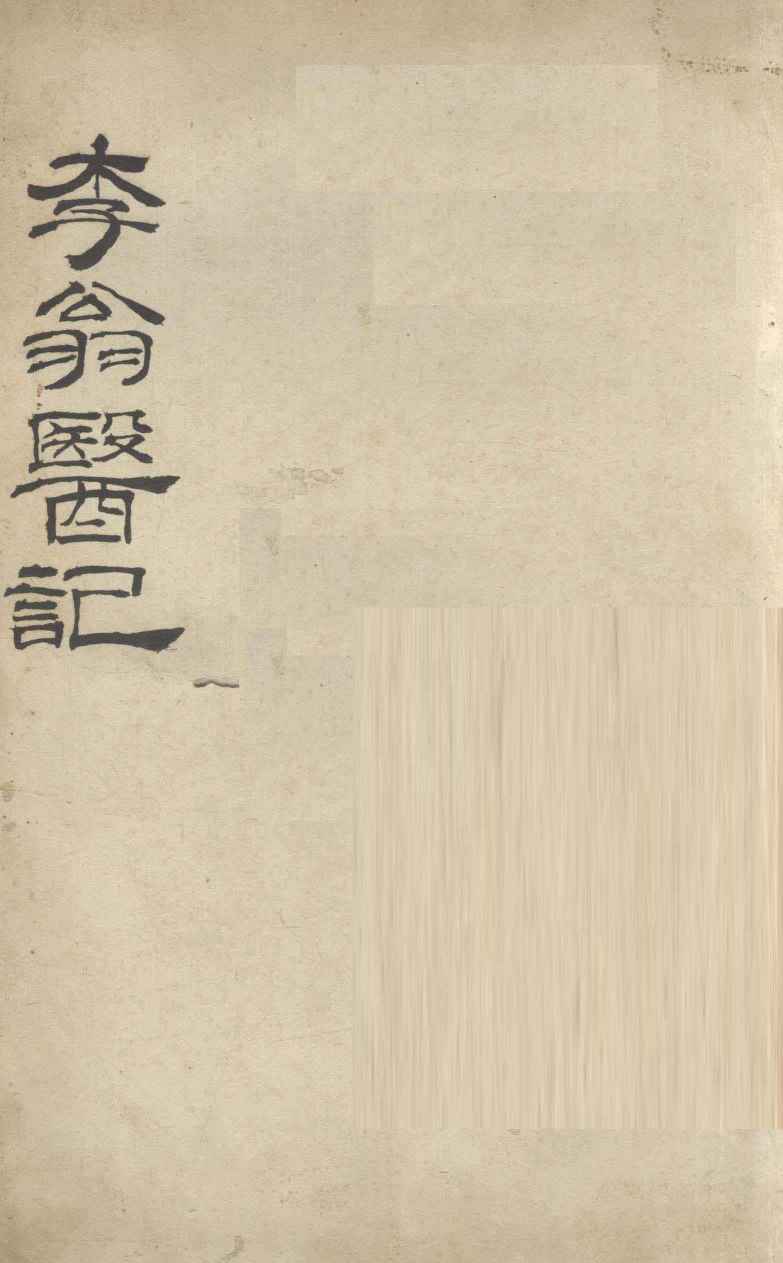 李翁醫記